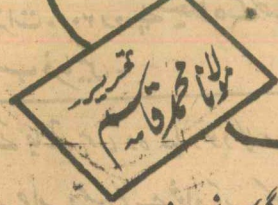 تحریر
مولانا محمد قاسم